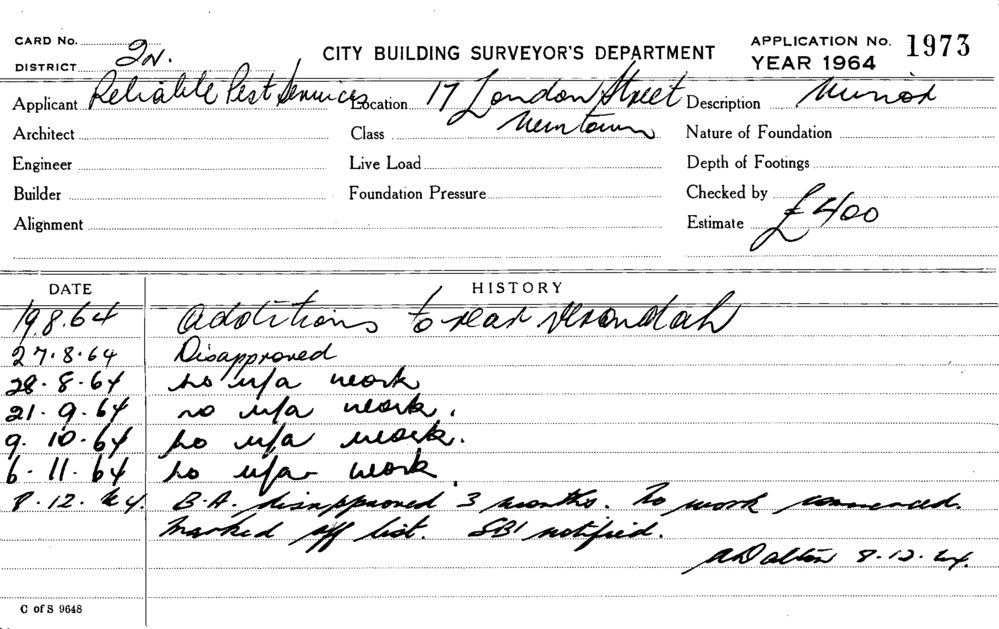 CARD No.
DISTRICT 2N.
CITY BUILDING SURVEYOR'S DEPARTMENT
APPLICATION No. 1973
YEAR 1964
Applicant Reliable Pest Services Location 17 London Street Description Minor
Architect Class Newtown Nature of Foundation
Engineer Live Load Depth of Footings
Builder Foundation Pressure Checked by
Alignment Estimate £400
DATE HISTORY
19.8.64 Additions to rear verandah
27.8.64 Disapproved
28.8.64 no u/a work
21.9.64 no u/a work.
9.10.64 no u/a work.
6.11.64 no u/a work
8.12.64. B.A. disapproved 3 months. No work commenced.
Marked off list. SBI notified.
ADalton 8.12.64.
C of S 9648